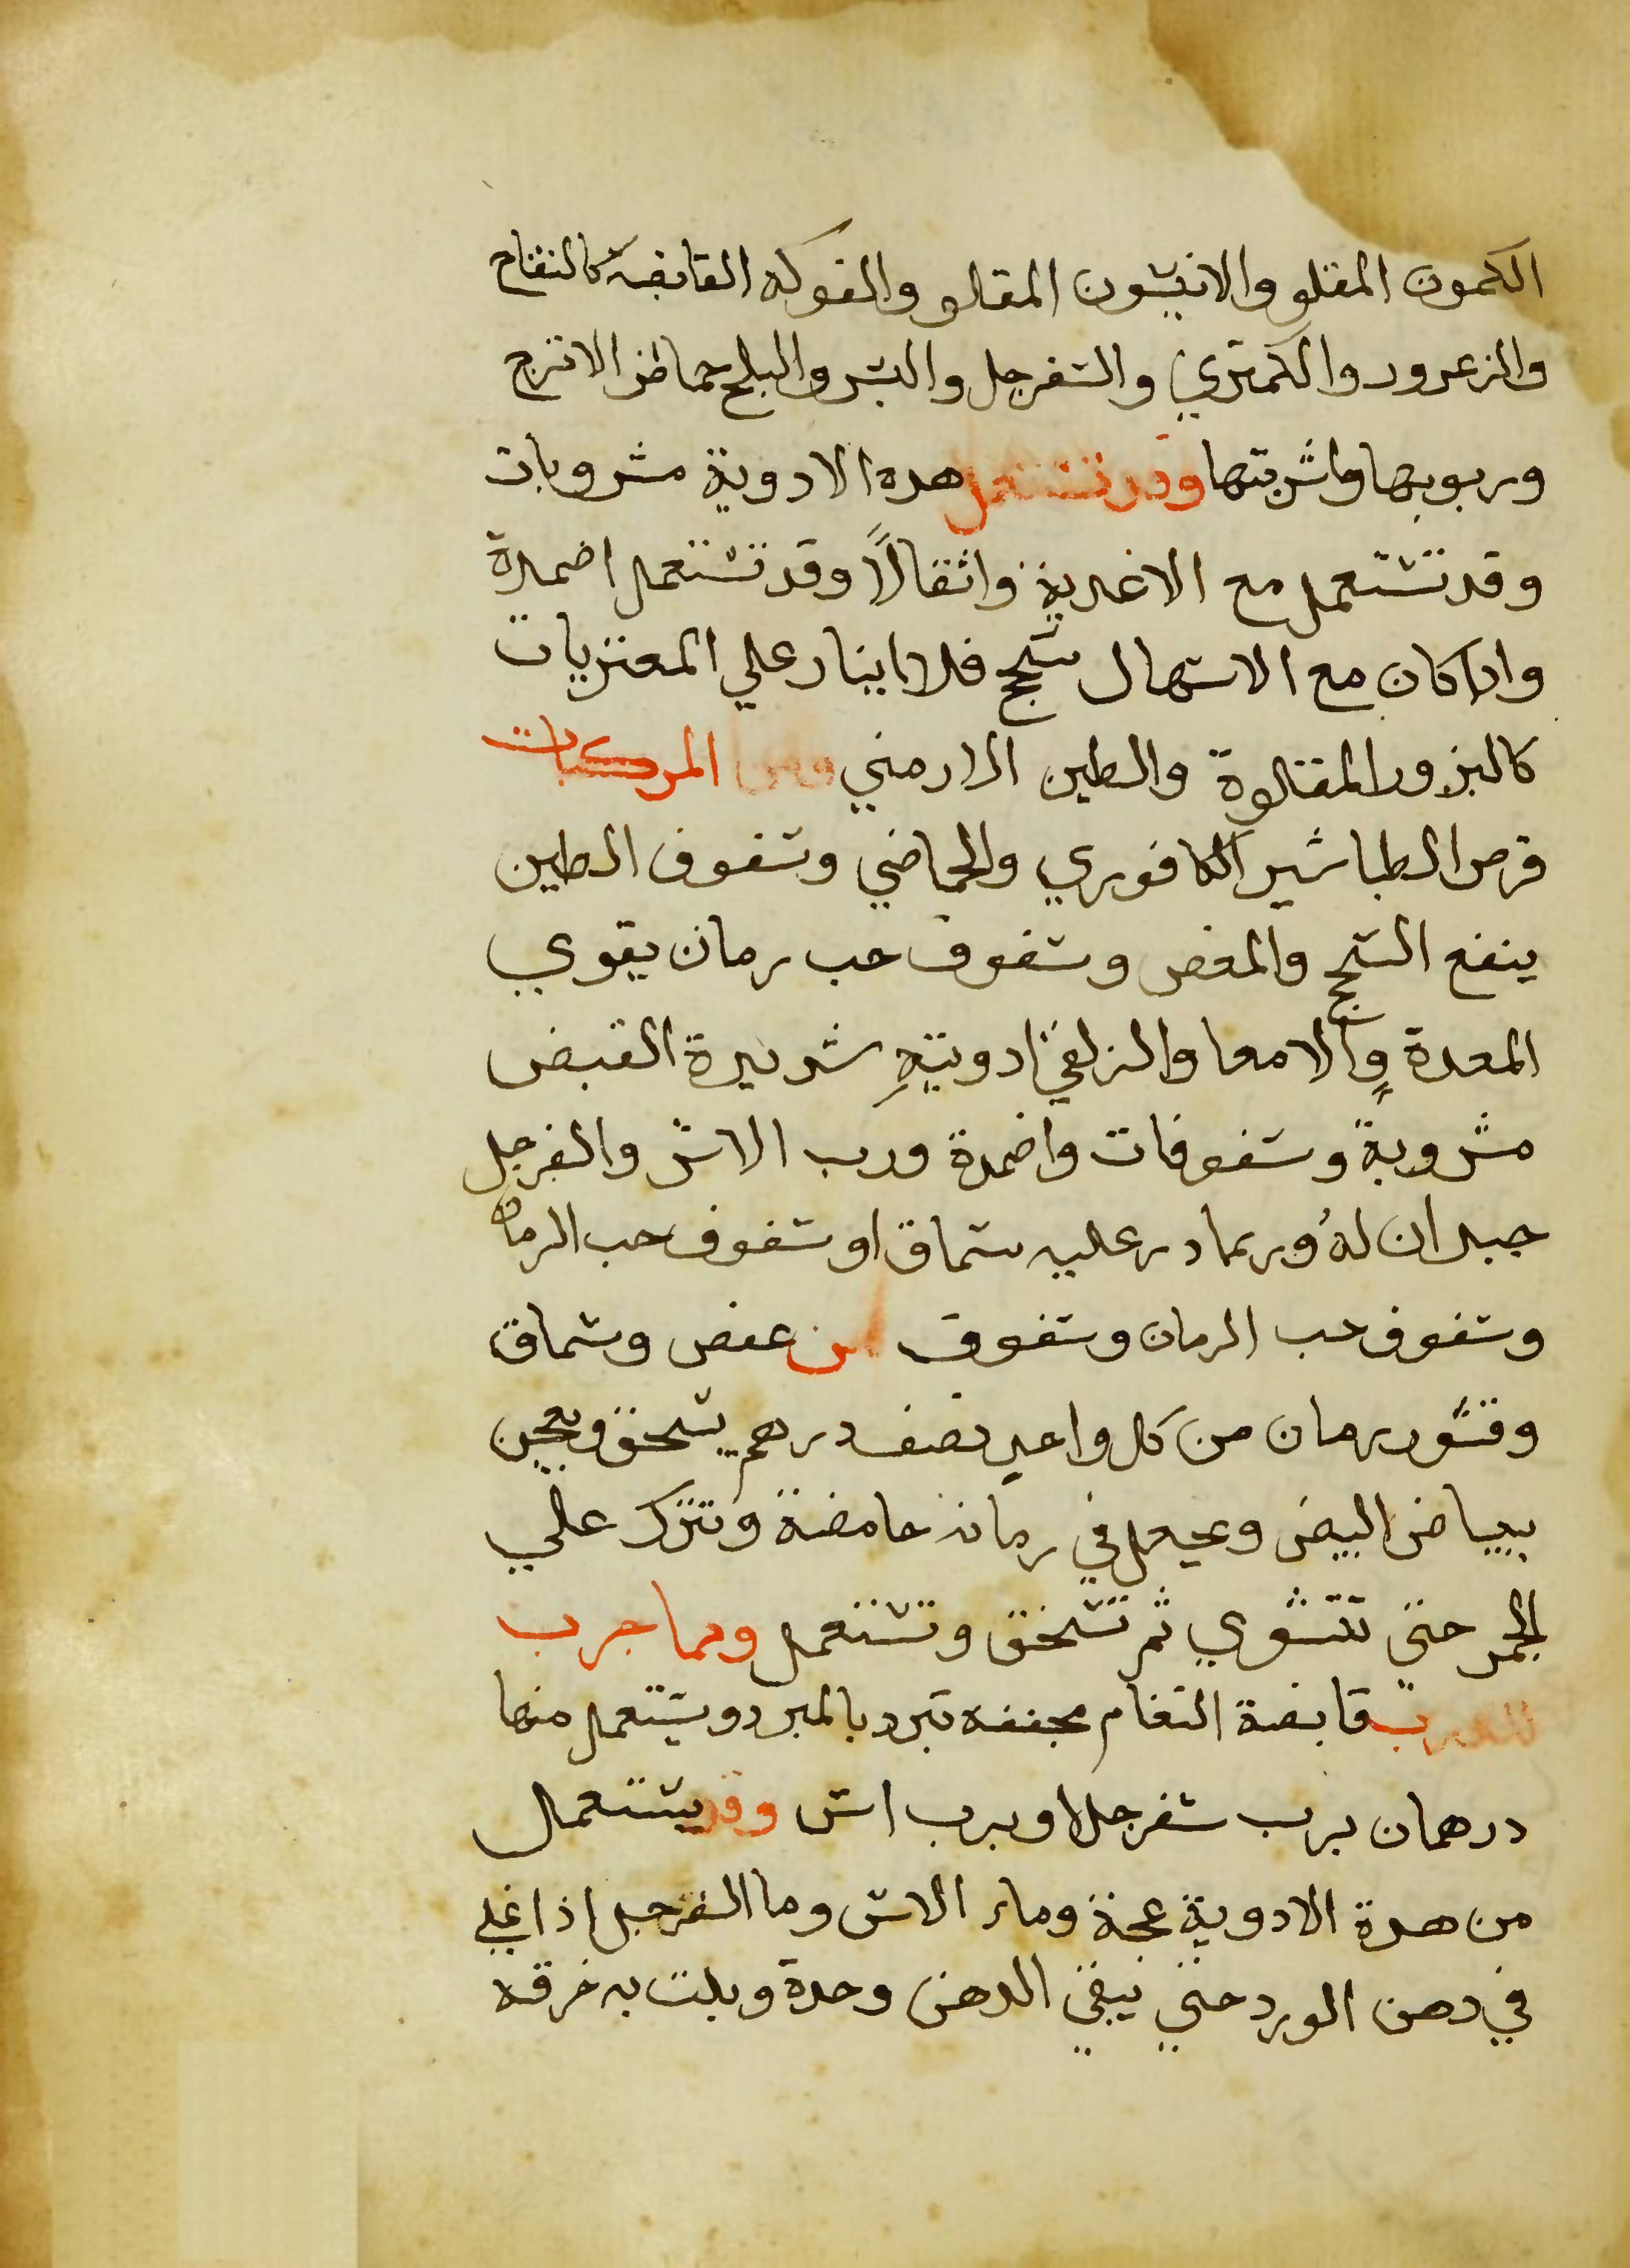 الكمون المقلو والانيسون المقلو والفوكه القابضة كالتفاح
والزعرور والكمتري والسفرجل والبسر والبلح حماض الاترج
وربوبها واشربتها وقد تستعمل هده الادوية مشروبات
وقد تستعمل مع الاغدية واثقالاً وقد تستعمل اضمدة
وادا كان مع الاسهال سحج فلا علي المغزيات
كالبزور المقلوة والطين الارمني ومن المركبات
قرص الطباشير الكافوري والحماضي وسفوف الطين
ينفع السحج والمغص وسفوف حب رمان يقوي
المعدة والامعا والزلقي ادويتهِ شديدة القبض
مشروبة وسفوفات واضمدة ورب الاس والفرجل
جيدان لهُ وربما در عليه سماق او سفوف حب الرمان
وسفوف حب الرمان وسفوف من عفص وسماق
وقشور رمان من كل واحدٍ نصف درهم يسحق ويعجن
ببياض البيض ويجعل في رمانة حامضة وتترك علي
الجمر حتي تتشوي ثم تسحق وتستعمل ومما جرب
قابضة النعام مجففه تبرد بالمبرد ويستعمل منها
درهمان برب سفرجل او برب اس وقد يستعمال
من هدة الادوية عجة وماء الاس وما السفرجل اذا غلي
في دهن الورد حتي يبقي الدهن وحدة وبلت به خرقه